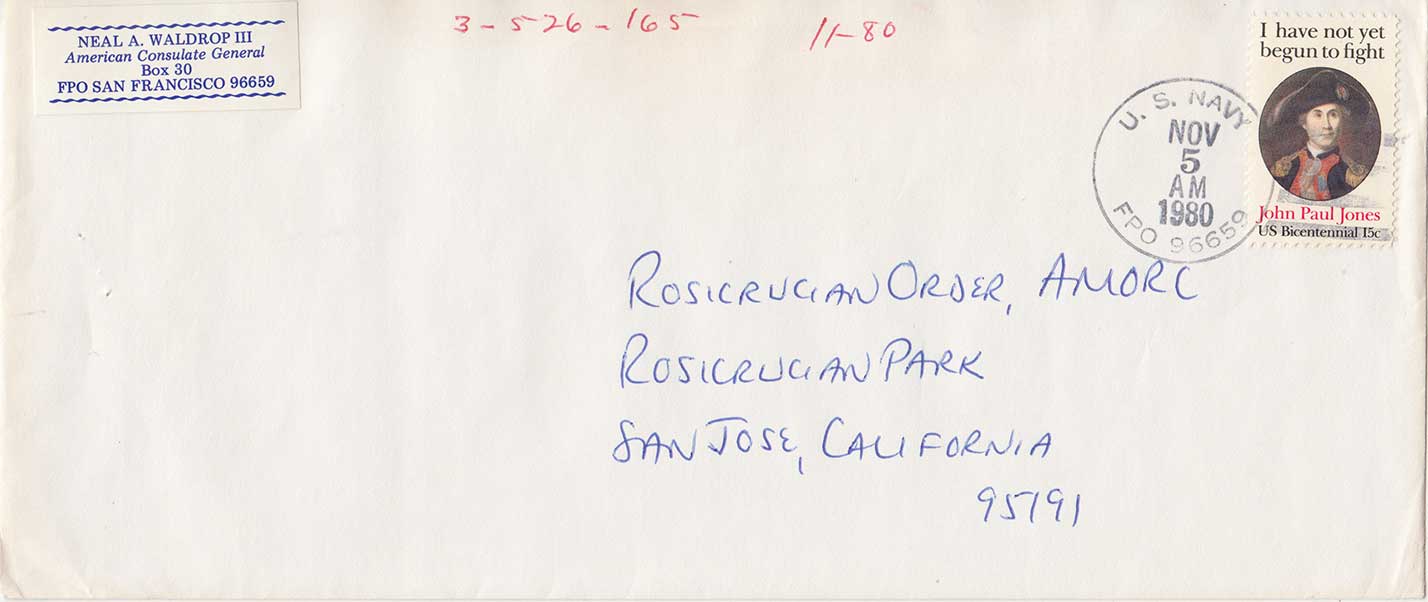 NEAL A. WALDROP III
American Consulate General
Box 30
FPO SAN FRANCISCO 96659
3-526-165
11-80
I have not yet
begun to fight
John Paul Jones
US Bicentennial 15c
U. S. NAVY
NOV
5
AM
1980
FPO 96659
ROSICRUCIAN ORDER, AMORC
ROSICRUCIAN PARK
SAN JOSE, CALIFORNIA
95191